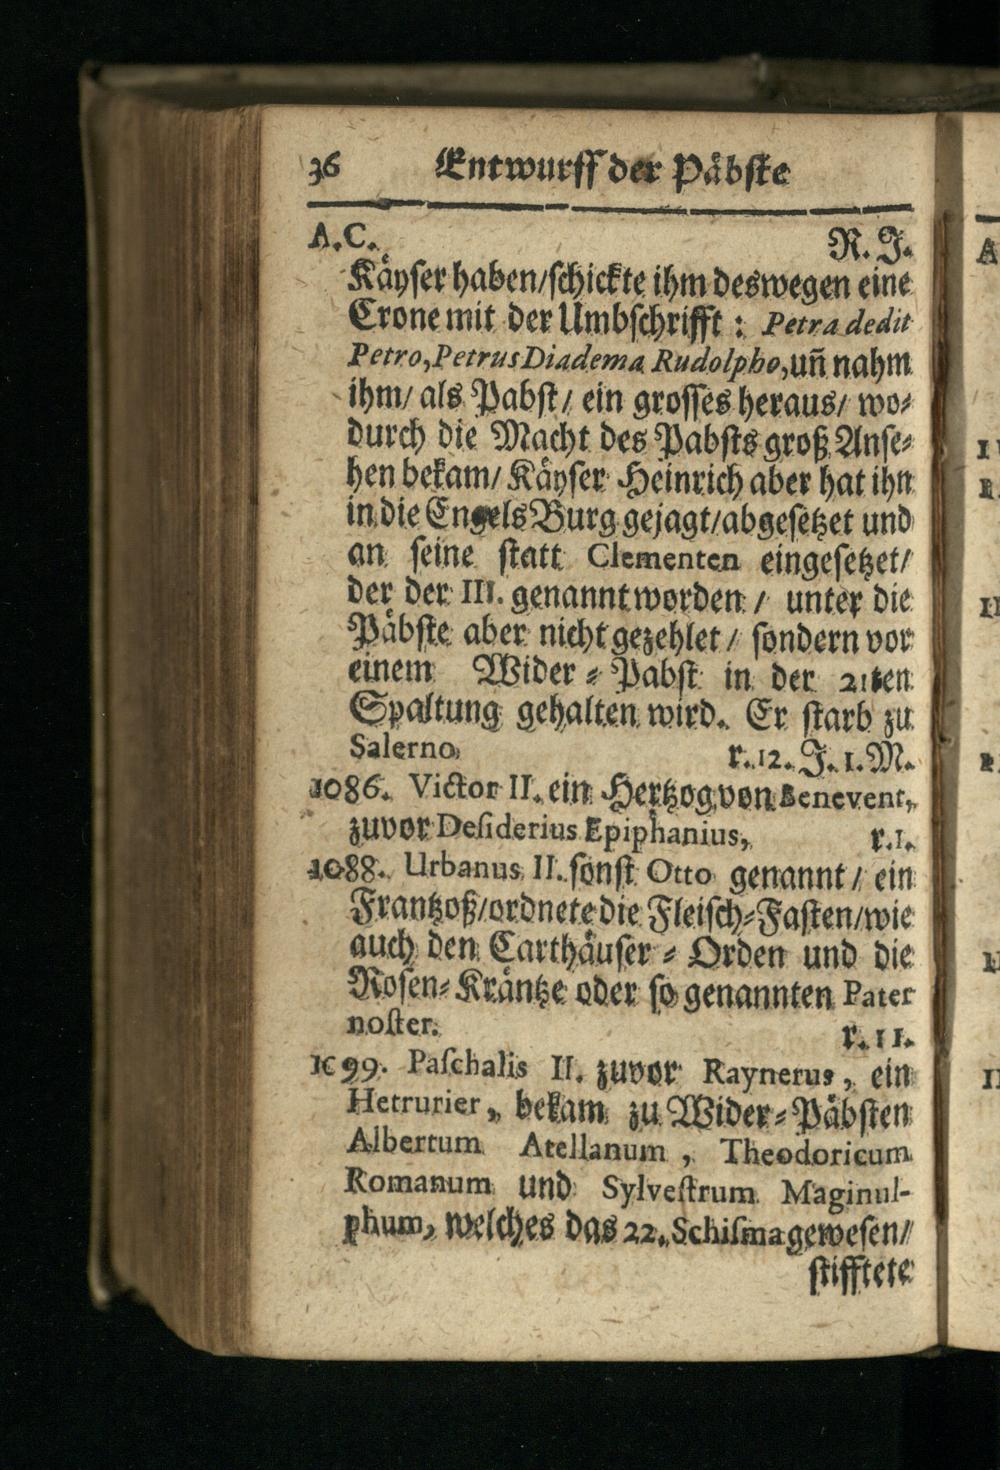 36 Entwurff der Påbste
A.C. R. J.
Kåyser haben/schickte ihm deswegen eine
Crone mit der Umbschrifft : Petra dedit
Petro, Petrus Diadema Rudolpho, uñ nahm
ihm/ als Pabst/ ein grosses heraus/ wo⸗
durch die Macht des Pabsts groß Anse⸗
hen bekam/ Kåyser Heinrich aber hat ihn
in die Engels Burg gejagt/abgesetzet und
an seine statt Clementen eingesetzet/
der der III. genannt worden / unter die
Påbste aber nicht gezehlet / sondern vor
einem Wider⸗Pabst in der 21ten
Spaltung gehalten wird. Er starb zu
Salerno, r. 12. J. 1. M.
1086. Victor II. ein Hertzog von Benevent,
zuvor Desiderius Epiphanius, r. 1.
1088. Urbanus II. sonst Otto genannt / ein
Frantzoß/ordnete die Fleisch⸗Fasten/wie
auch den Carthåuser⸗Orden und die
Rosen⸗Kråntze oder so genannten Pater
noster. r. 11.
1099. Paschalis II. zuvor Raynerus, ein
Hetrurier, bekam zu Wider⸗Påbsten
Albertum Atellanum, Theodoricum
Romanum und Sylvestrum Maginul-
phum, welches das 22. Schisma gewesen/
stifftete